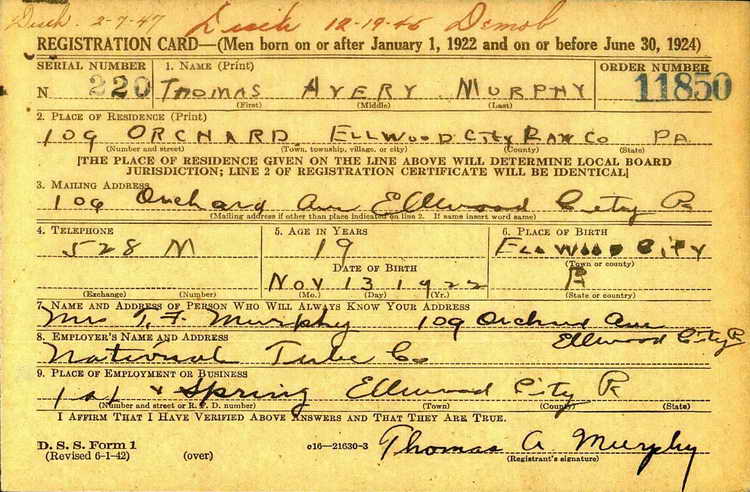 Disch. 2-7-47 Disch 12-19-46 Demob
REGISTRATION CARD—(Men born on or after January 1, 1922 and on or before June 30, 1924)
SERIAL NUMBER 1. NAME (Print) ORDER NUMBER
N 220 THOMAS AVERY MURPHY 11850
(First) (Middle) (Last)
2. PLACE OF RESIDENCE (Print)
109 ORCHARD ELLWOOD CITY LAW CO PA
(Number and street) (Town, township, village, or city) (County) (State)
[THE PLACE OF RESIDENCE GIVEN ON THE LINE ABOVE WILL DETERMINE LOCAL BOARD
JURISDICTION; LINE 2 OF REGISTRATION CERTIFICATE WILL BE IDENTICAL]
3. MAILING ADDRESS
109 Orchard Ave Ellwood City Pa
(Mailing address if other than place indicated on line 2. If same insert word same)
4. TELEPHONE 5. AGE IN YEARS 6. PLACE OF BIRTH
528 M 19 ELLWOOD CITY
DATE OF BIRTH (Town or county)
NOV 13 1922 Pa
(Exchange) (Number) (Mo.) (Day) (Yr.) (State or country)
7. NAME AND ADDRESS OF PERSON WHO WILL ALWAYS KNOW YOUR ADDRESS
Mrs T. F. Murphy 109 Orchard Ave
8. EMPLOYER'S NAME AND ADDRESS Ellwood City Pa
National Tube Co
9. PLACE OF EMPLOYMENT OR BUSINESS
1st & Spring Ellwood City Pa
(Number and street or R. F. D. number) (Town) (County) (State)
I AFFIRM THAT I HAVE VERIFIED ABOVE ANSWERS AND THAT THEY ARE TRUE.
D. S. S. Form 1 c16—21630-3 Thomas A Murphy
(Revised 6-1-42) (over) (Registrant's signature)